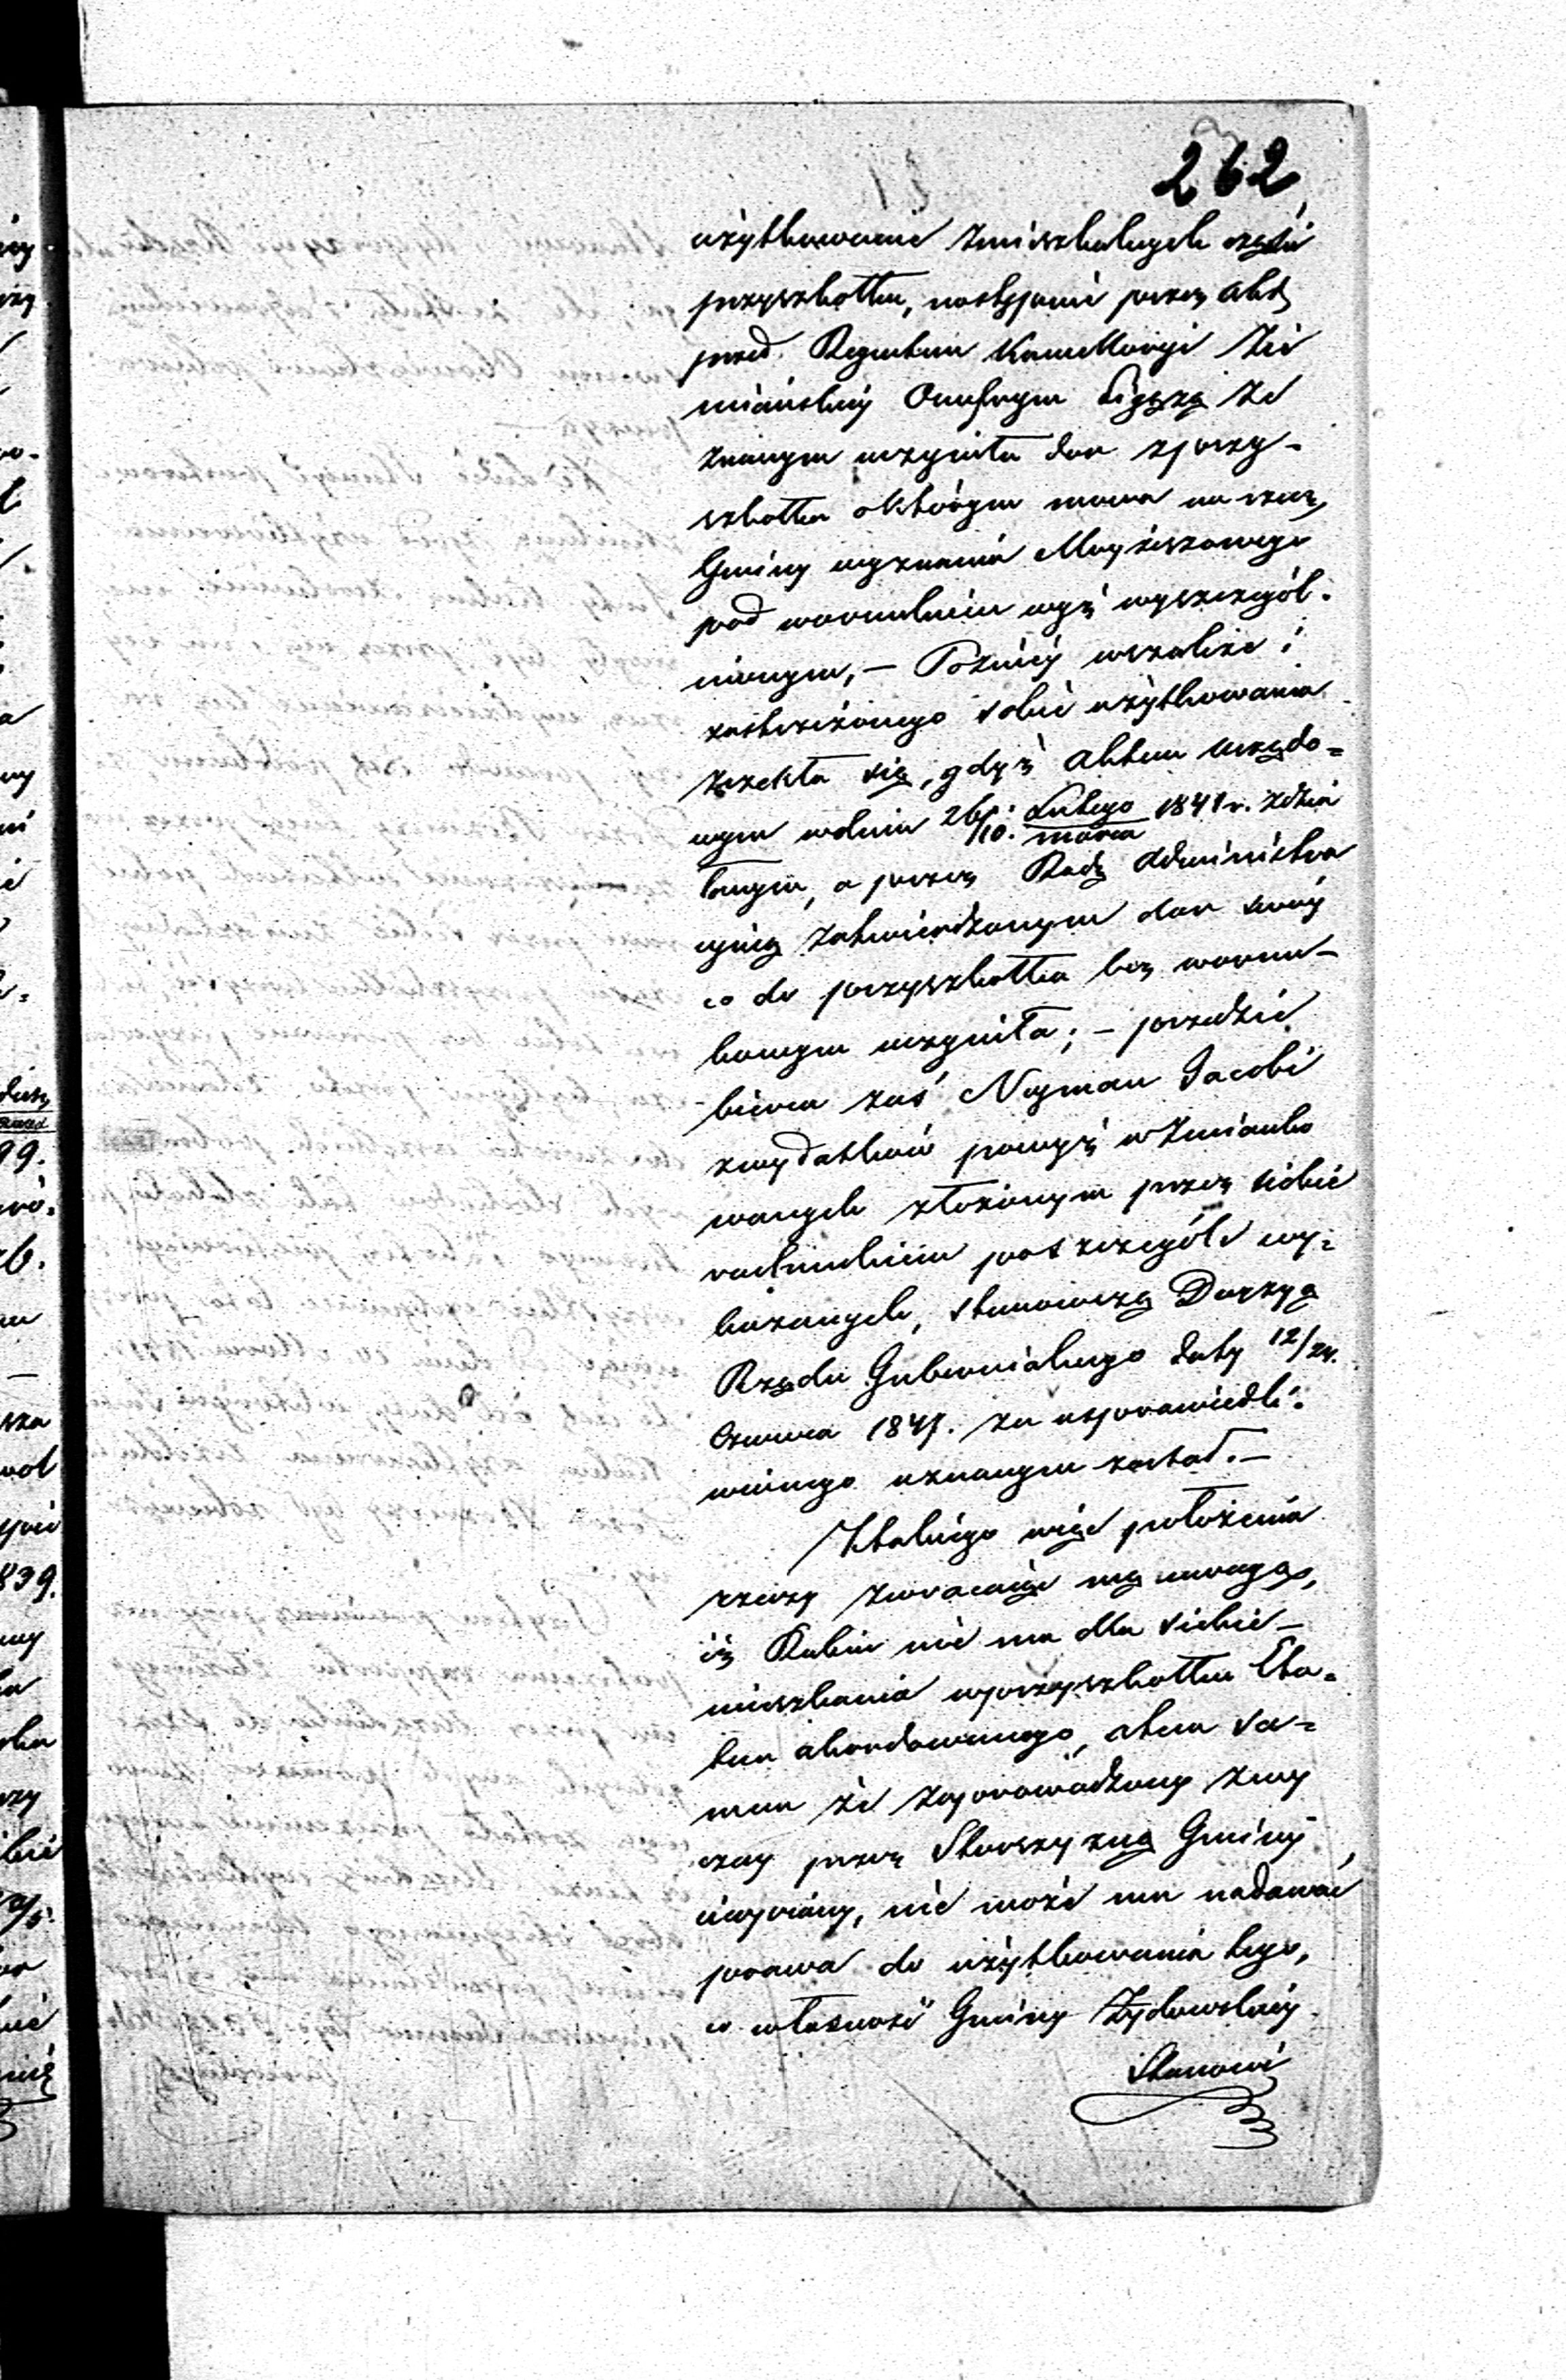 262
użytkowanie zmieszkalnych części
przyszkołku, następnie przez akt
przed Regentem Kancellaryi Zie
miańskiej Onufrym Ligęzą ze
znanym uczyniła dar z przy-
szkołka o którym mowa na rzecz
Gminy wyznania Mojżeszowego
pod warunkiem wyż wyszczegól-
nionym, – Później wszakże i
zastrzeżonego sobie użytkowania
zrzekła się, gdyż aktem urzędo=
wym w dniu 26/10. Lutego/Marca 1841 r. zdzia
łanym, a przez Radę Administra
cyjną zatwierdzonym dar swój
co do przyszkołka bez warun-
kowym uczyniła; – przedsię
bierca zaś Nejman Jacobi
z wydatków powyż wzmianko
wanych złożonym przez siebie
rachunkiem poszczególe wy=
kazanych, stanowczą Decyzyą
Rządu Gubernialnego daty 12/24.
Czerwca 1841. za usprawiedli-
wionego uznanym został. –
Z takiego więc położenia
rzeczy zwracając się uwagę,
iż Rabin nie ma dla siebie –
mieszkania w przyszkołku Eta=
tem akordowanego, a tem sa=
mem że zaprowadzony zwy
czaj przez Starszyznę Gminy
używany, nie może mu nadawać
prawa do użytkowania tego,
co własność Gminy Żydowskiej
Stanowi